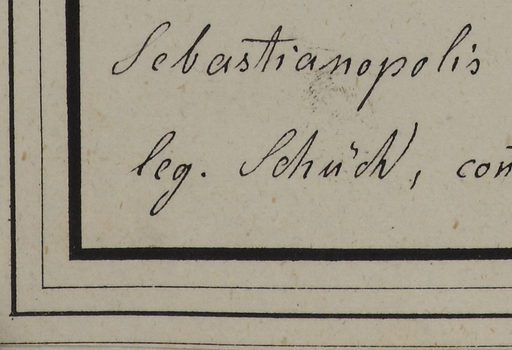 Sebastianopolis
leg. Schüch, com